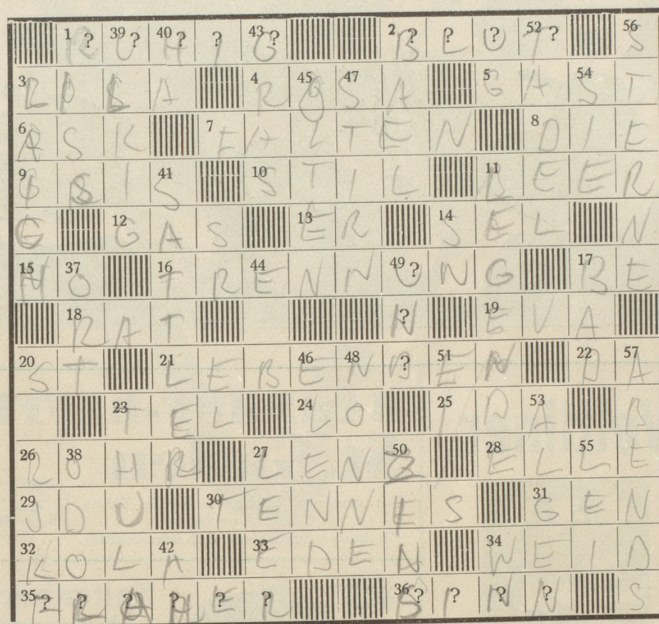 1? R 39? U 40? H ? I 43? G 2? B ? L ? U 52? T 56 S
3 R O S A 4 R 45 O 47 S A 5 G A 54 S T
6 A S K 7 F A L T E N 8 D I E
9 I S I 41 S 10 S T I L 11 B E E R
G 12 G A S 13 E R 14 S E L N
15 N 37 O 16 T R 44 E N N 49? U N G 17 B E
18 R A T ? N 19 E V A
20 S T 21 L E B 46 E 48 N ? D 51 E N 22 D 57 A
23 T E L 24 L O 25 I D 53 A B
26 R 38 O H R 27 L E N 50 Z 28 E L 55 L E
29 U D U 30 T E N N E S 31 G E N
32 K O L 42 A 33 E D E N 34 W E I D
35? ? ? ? ? E ? R 36? S ? I ? N ? N S